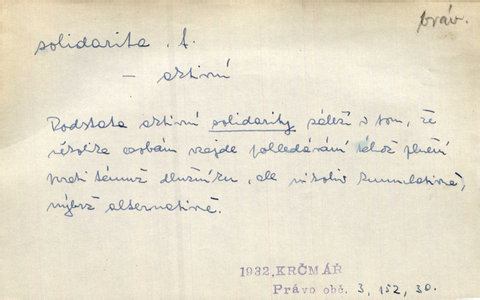 práv.
solidarita, f.
— aktivní
Podstata aktivní solidarity záleží v tom, že
několika osobám vzejde pohledávání téhož plnění
proti témuž dlužníku, ale nikoliv kumulativně,
nýbrž alternativně.
1932, KRČMÁŘ
Právo obč. 3, 152, 30.